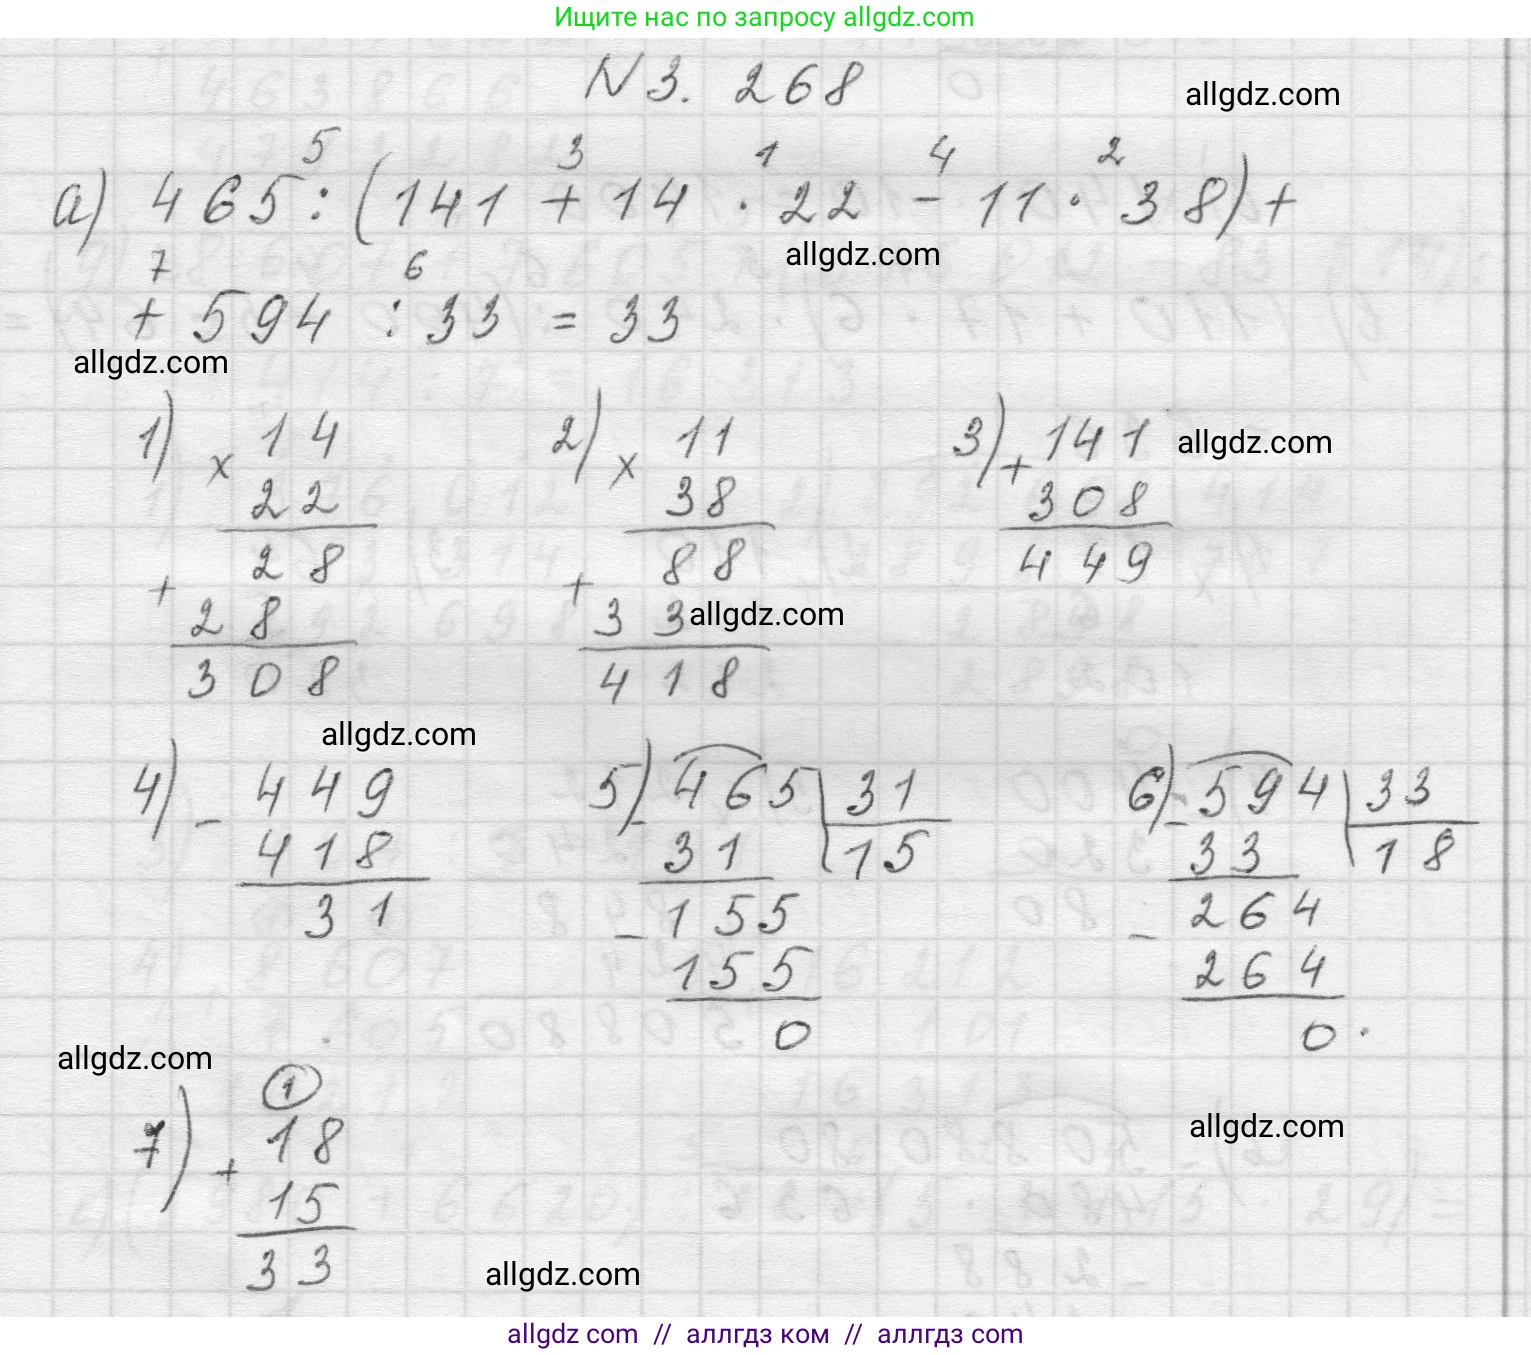 Ищите нас по запросу allgdz.com
N 3. 268
allgdz.com
5 3 1 4 2
а) 465 : (141 + 14 · 22 - 11 · 38) +
allgdz.com
7 6
+ 594 : 33 = 33
allgdz.com
1) × 14
22
28
+ 28
308
2) × 11
38
88
+ 33
allgdz.com
418
3) + 141
allgdz.com
308
449
allgdz.com
4) - 449
418
31
5) - 465 31
31 15
- 155
155
0
6) - 594 33
33 18
- 264
264
0
allgdz.com
1
7) + 18
15
33
allgdz.com
allgdz.com
allgdz com // аллгдз ком // аллгдз com